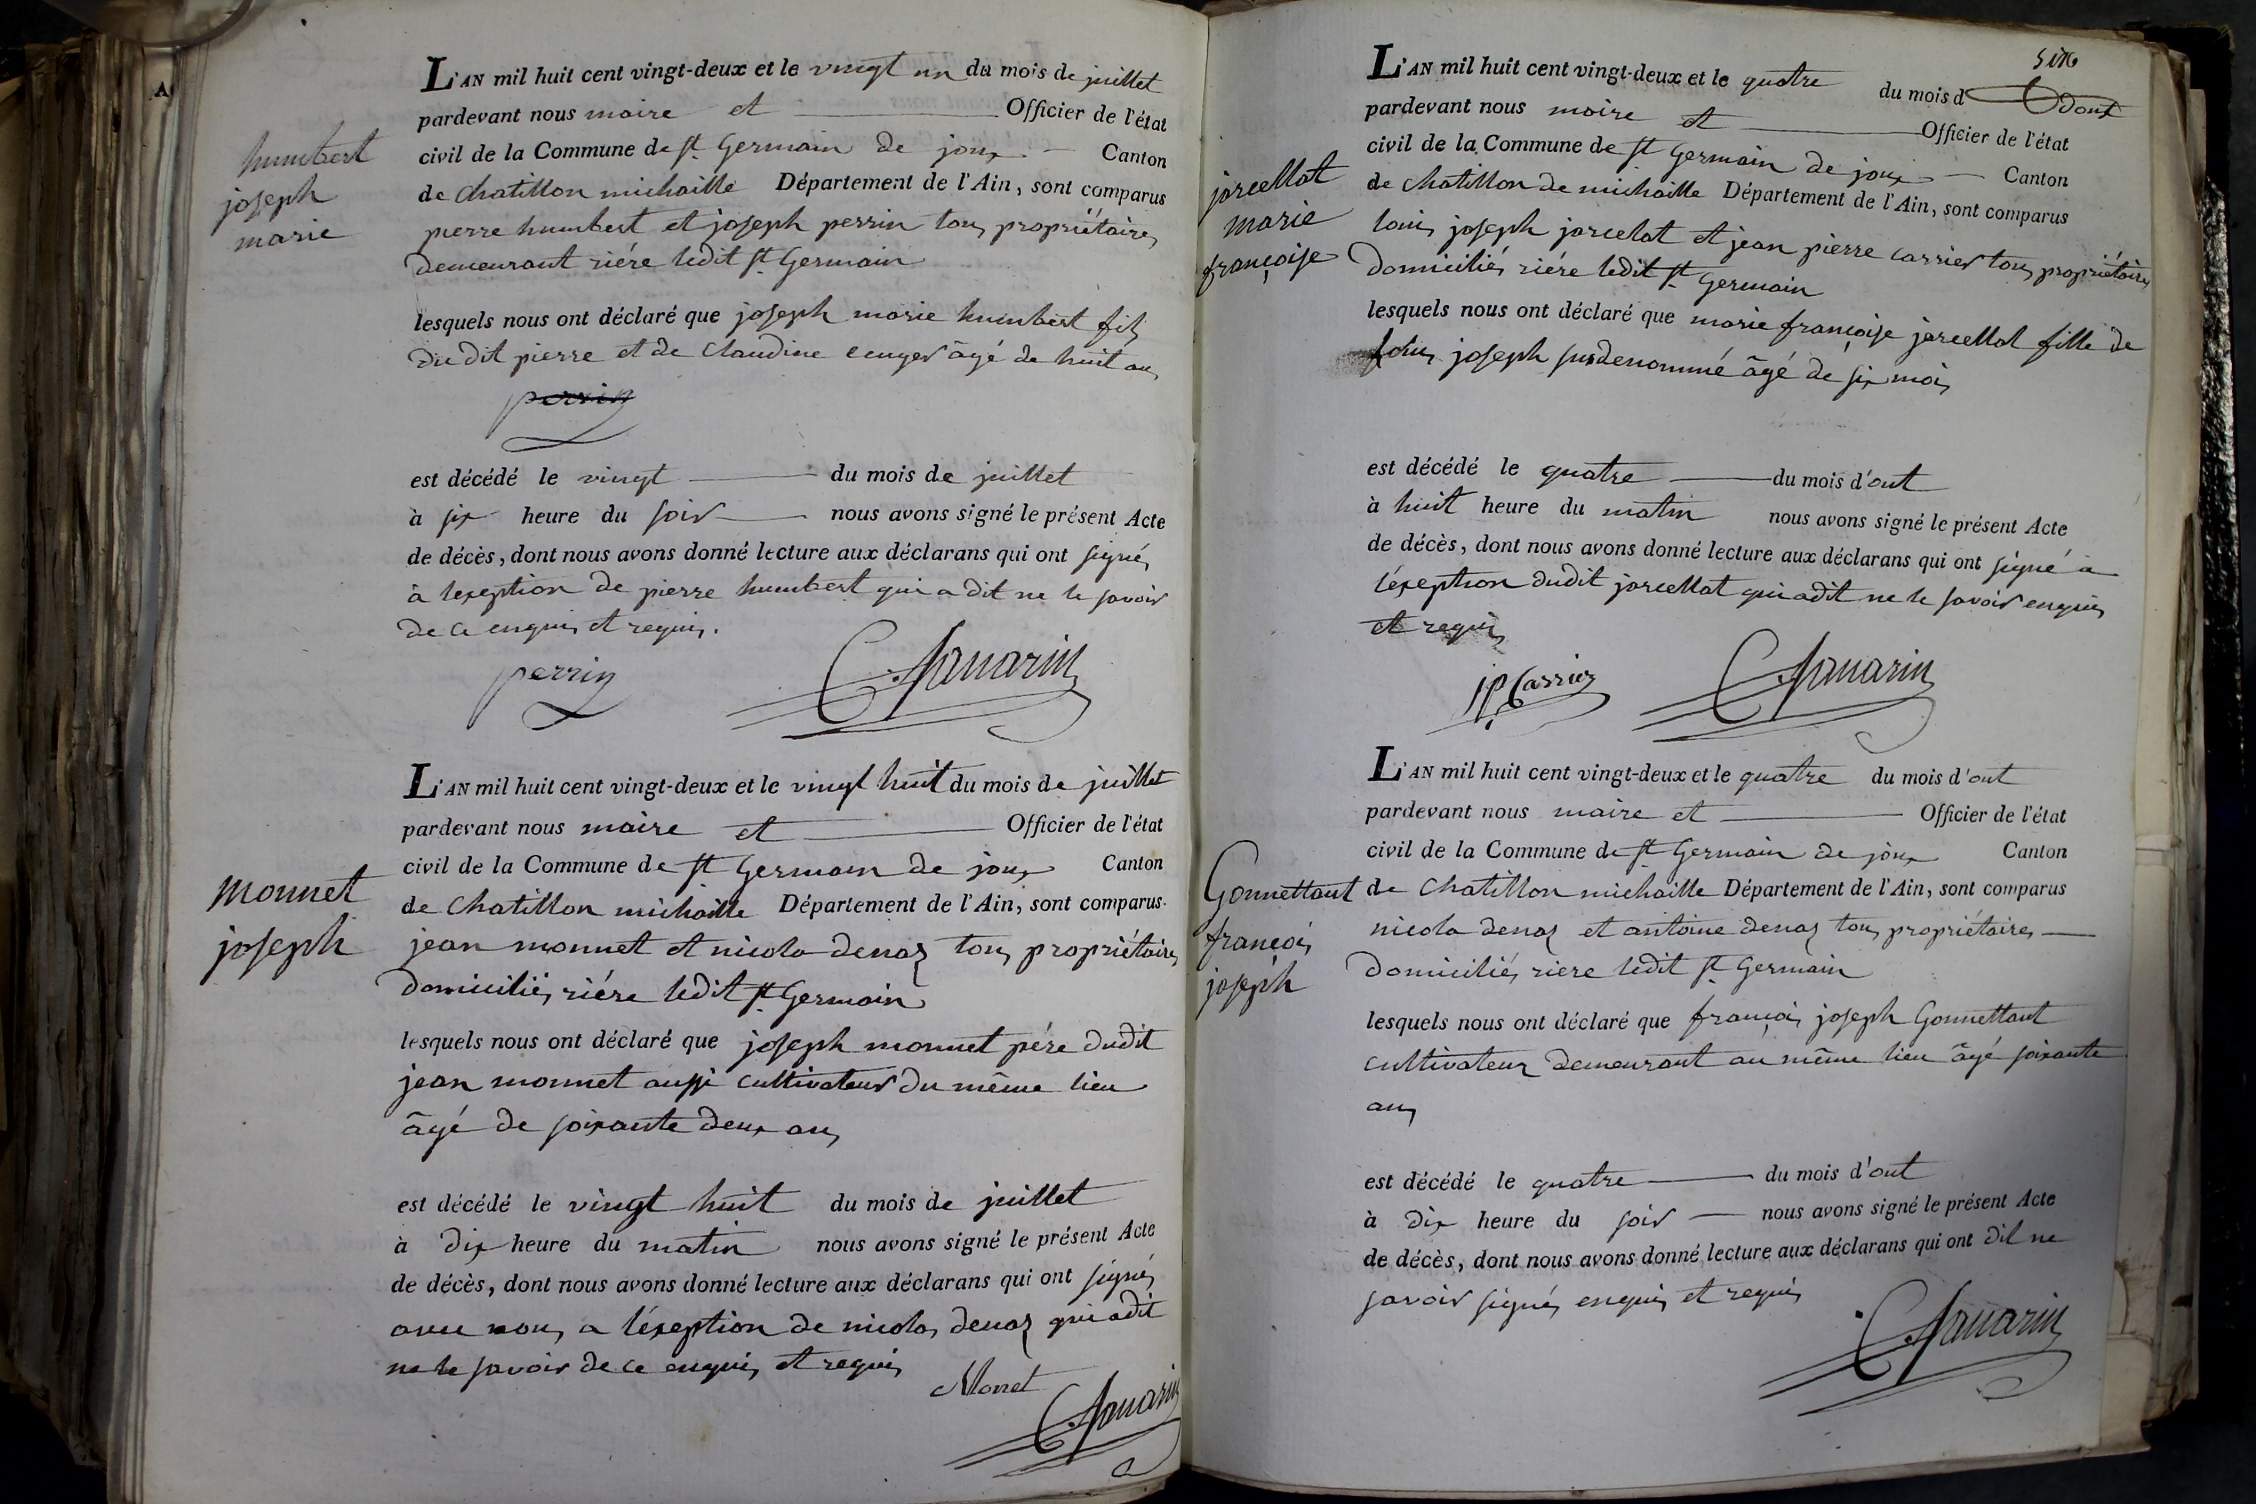 humbert
joseph
marie
L'AN mil huit cent vingt-deux et le vingt un du mois de juillet
pardevant nous maire et Officier de l'état
civil de la Commune de st Germain de joux Canton
de chatillon michaille Département de l'Ain, sont comparus
pierre humbert et joseph perrin tous propriétaires
demeurant riére ledit st Germain
lesquels nous ont déclaré que joseph marie humbert fils
du dit pierre et de claudine âgé de huit ans
perrin
est décédé le vingt du mois de juillet
à six heure du soir nous avons signé le présent Acte
de décès, dont nous avons donné lecture aux déclarans qui ont signés
à lexeption de pierre humbert qui a dit ne le savoir
de ce enquis et requis.
perrin
monnet
joseph
L'AN mil huit cent vingt-deux et le vingt huit du mois de juillet
pardevant nous maire et Officier de l'état
civil de la Commune de st Germain de joux Canton
de chatillon michaille Département de l'Ain, sont comparus
jean monnet et nicola denaz tous propriétaires
domiciliés riére ledit st Germain
lesquels nous ont déclaré que joseph monnet pére dudit
jean monnet aussi cultivateur du même lieu
âgé de soixante deux ans
est décédé le vingt huit du mois de juillet
à dix heure du matin nous avons signé le présent Acte
de décès, dont nous avons donné lecture aux déclarans qui ont signés
avec nous a léxeption de nicolas denaz qui adit
ne le savoir de ce enquis et requis
Monet
six
jarcellat
marie
françoise
L'AN mil huit cent vingt-deux et le quatre du mois d dout
pardevant nous maire et Officier de l'état
civil de la Commune de st Germain de joux Canton
de chatillon de michaille Département de l'Ain, sont comparus
louis joseph jarcelat et jean pierre carrier tous propriétaires
domiciliés riére ledit st Germain
lesquels nous ont déclaré que marie françoise jarcellat fille de
louis joseph susdenommé âgé de six mois
est décédé le quatre du mois d'out
à huit heure du matin nous avons signé le présent Acte
de décès, dont nous avons donné lecture aux déclarans qui ont signé a
léxeption dudit jarcellat qui adit ne le savoir enquis
et requis
JP Carrier
Gonnettant
françois
joseph
L'AN mil huit cent vingt-deux et le quatre du mois d'out
pardevant nous maire et Officier de l'état
civil de la Commune de st Germain de joux Canton
de chatillon michaille Département de l'Ain, sont comparus
nicola denaz et antoine denaz tous propriétaires
domiciliés riere ledit st Germain
lesquels nous ont déclaré que françois joseph Gonnettant
cultivateur demeurant au même lieu âgé soixante
ans
est décédé le quatre du mois d'out
à dix heure du soir nous avons signé le présent Acte
de décès, dont nous avons donné lecture aux déclarans qui ont dit ne
savoir signés enquis et requis